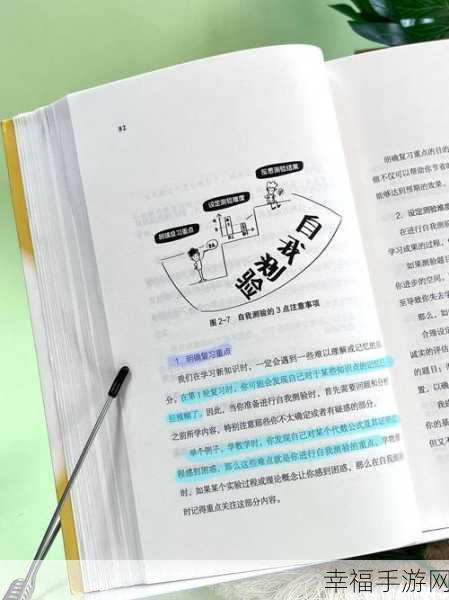 82
反思测验结果
设定测验难度
明确复习重点
自我测验
图 2-7 自我测验的 3 点注意事项
1. 明确复习重点
我们在学习新知识时,一定会遇到一些难以理解或记忆的部
分。在第 1 轮复习时,你可能会发现自己对于某些知识点的记忆已
经模糊了。因此,当你准备进行自我测验时,首先需要回顾和分析
之前所学内容,特别注意那些你不太确定或者有疑惑的部分。
举个例子,学数学时,你发现自己对某个代数公式及其证明过
程感到困惑,那么这些难点就是你进行自我测验的重点。学物理
时,如果某个实验过程或理论概念让你感到困惑,那么在自我测
时记得重点关注这部分内容。
明确复习重点的目的
细不仅可以帮助你节省
能够达到预期的效果。
2. 设定测验难度
在进行自我测
学习成果的过程,
如果测验题
你进步的空间,
至导致你失去学
那么,如
合理设
诚实的评估
的题目;
置,以确
我们
但又不
幸福手游网